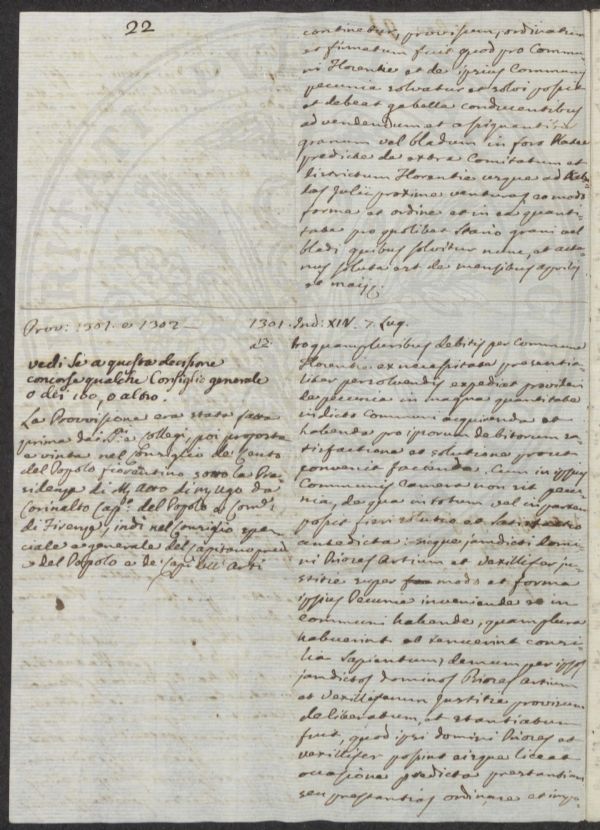 22
continetur, provisum, ordinatum
et firmatum fuit quod pro Commu-
ni Florentie et de ipsius Communis
pecunia solvatur et solvi possit
et debeat gabella conducentibus
ad vendendum et assignantibus
granum vel bladum in foro Platee
predicte de extra Comitatum et
districtum Florentie usque ad Kalen-
das Julii proxime venturas, eo modo
forma et ordine et in ea quanti-
tate pro quolibet Stario grani vel
bladi quibus solvitur nunc, et acte-
nus soluta est de mensibus aprilis
et maij.
Prov: 1301. e 1302 —
1301. Ind: XIV. 7. Lug.
vedi Se a questa decisione
concorse qualche Consiglio generale
o dei 100, o altro.
La Provvisione era stata fatta
prima dai Pi.a Collegi, poi proposta
e vinta nel Consiglio de Cento
del Popolo fiorentino sotto la Pre-
sidenza di M. Atto di m. Ugo da
Corinalto Cap.o del Popolo e Com.e
di Firenze, indi nel Consiglio spe-
ciale e generale del Capitano pred.o
e del Popolo e de' Cap: dell'Arti
22. Pro quampluribus debitis per Commune
Florentie ex necessitate presentia-
liter persolvendis expediat provideri
de pecunia in magna quantitate
in dicto Communi acquirenda et
habenda pro ipsorum debitorum sa-
tisfactione et solutione prout
convenit facienda. Cum in ipsius
Communis Camera non sit pecu-
nia, de qua in totum vel in partem
possit fieri solutio et satisfactio
antedicta: sique jamdicti domi-
ni Priores Artium et Vexillifer ju-
stitie super modo et forma
ipsius Pecunie inveniende et in
communi habende, quamplura
habuerint et tenuerint consi-
lia Sapientum; demum per ipsos
jamdictos dominos Priores Artium
et Vexilliferum justitie provisum
deliberatum, et stantiatum
fuit, quod ipsi domini Priores et
vexillifer possint eisque liceat
occasione predicta prestantiam
seu prestantias ordinare et impo-